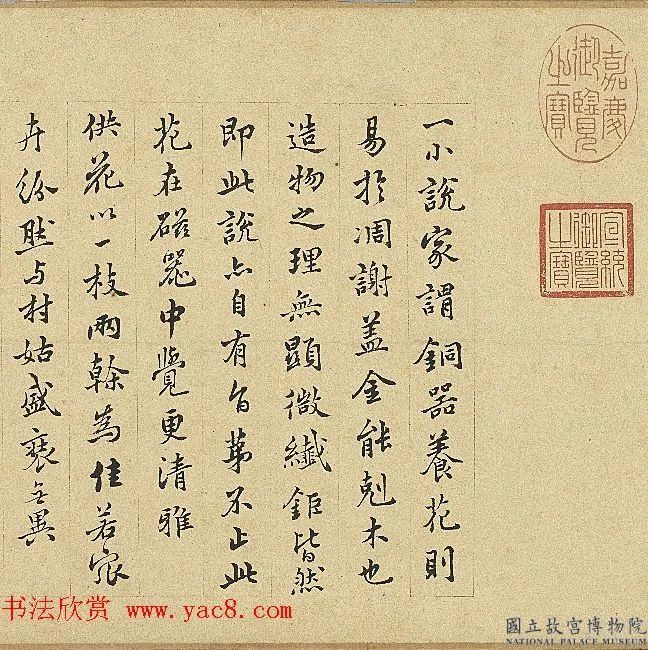 一小說家謂銅器養花則
易於凋謝蓋金能剋木也
造物之理無顯微纖鉅皆然
即此說亦自有旨苐不止此
花在磁器中覺更清雅
供花以一枝兩榦為佳若眾
卉紛然与村姑盛裹無異
嘉慶御覽之寶
宣統御覽之寶
书法欣赏 www.yac8.com
國立故宮博物院
NATIONAL PALACE MUSEUM